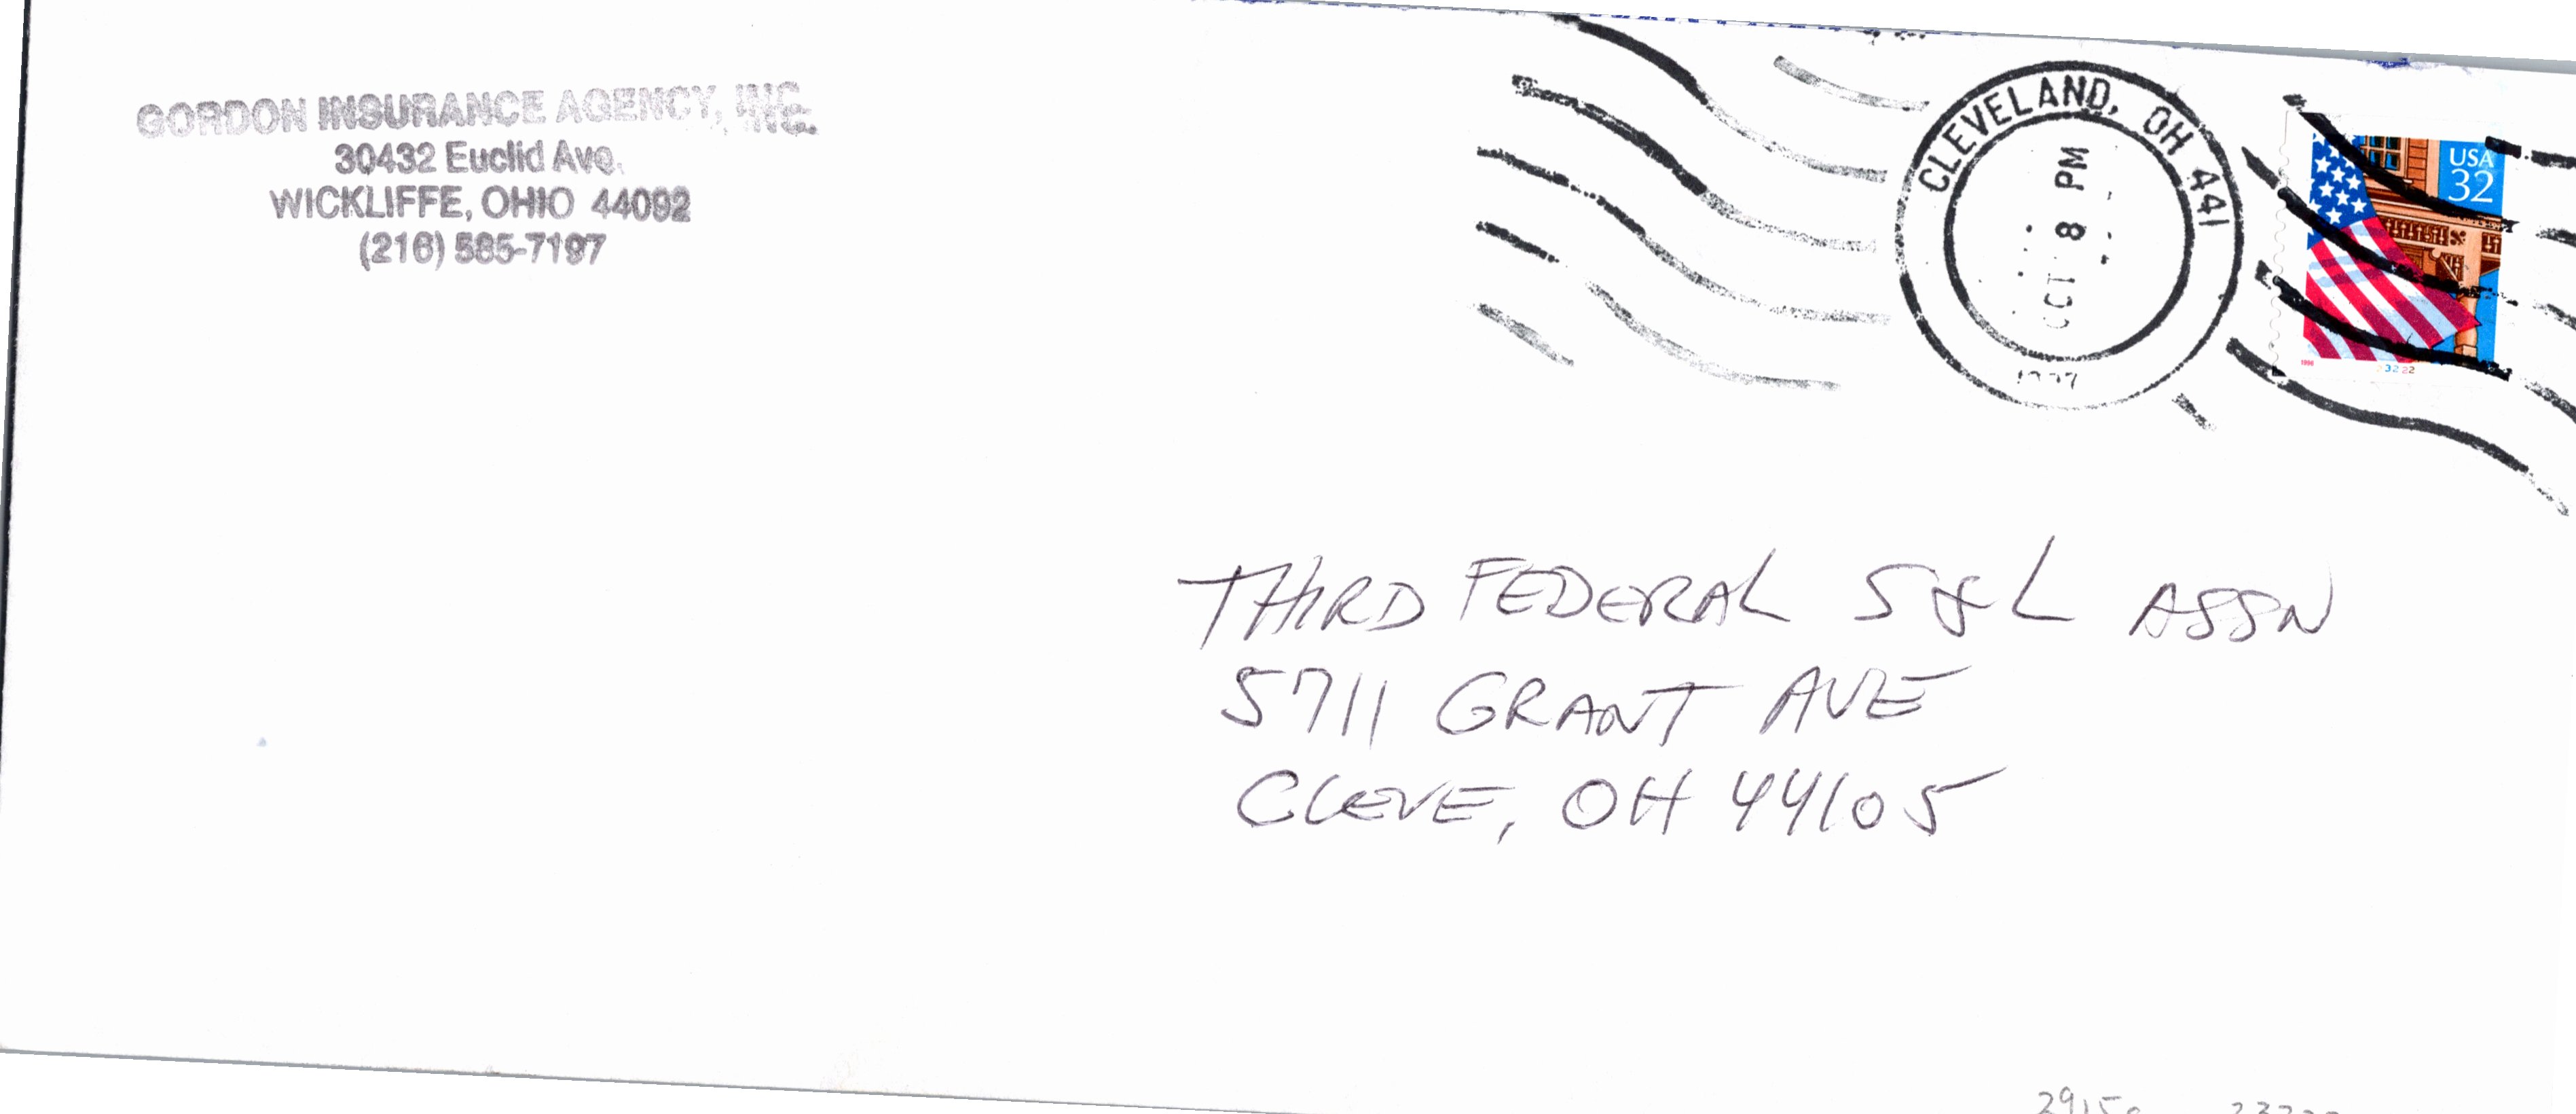 GORDON INSURANCE AGENCY, INC.
30432 Euclid Ave.
WICKLIFFE, OHIO 44092
(216) 585-7197
CLEVELAND, OH 441
OCT 8 PM
1997
USA
32
THIRD FEDERAL S&L ASSN
5711 GRANT AVE
CLEVE, OH 44105